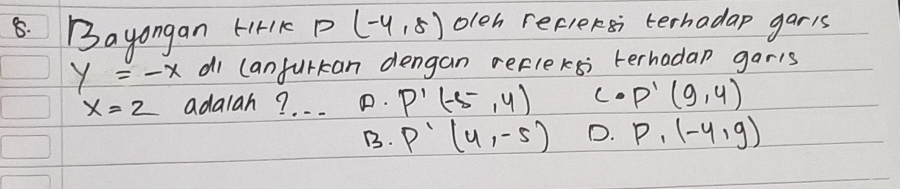 8. Bayangan titik P (-4,5) oleh refleksi terhadap garis
y = -x di lanjutkan dengan refleksi terhadap garis
x = 2 adalah ?... A. P' (-5,4) C. P' (9,4)
B. P' (4,-5) D. P, (-4,9)